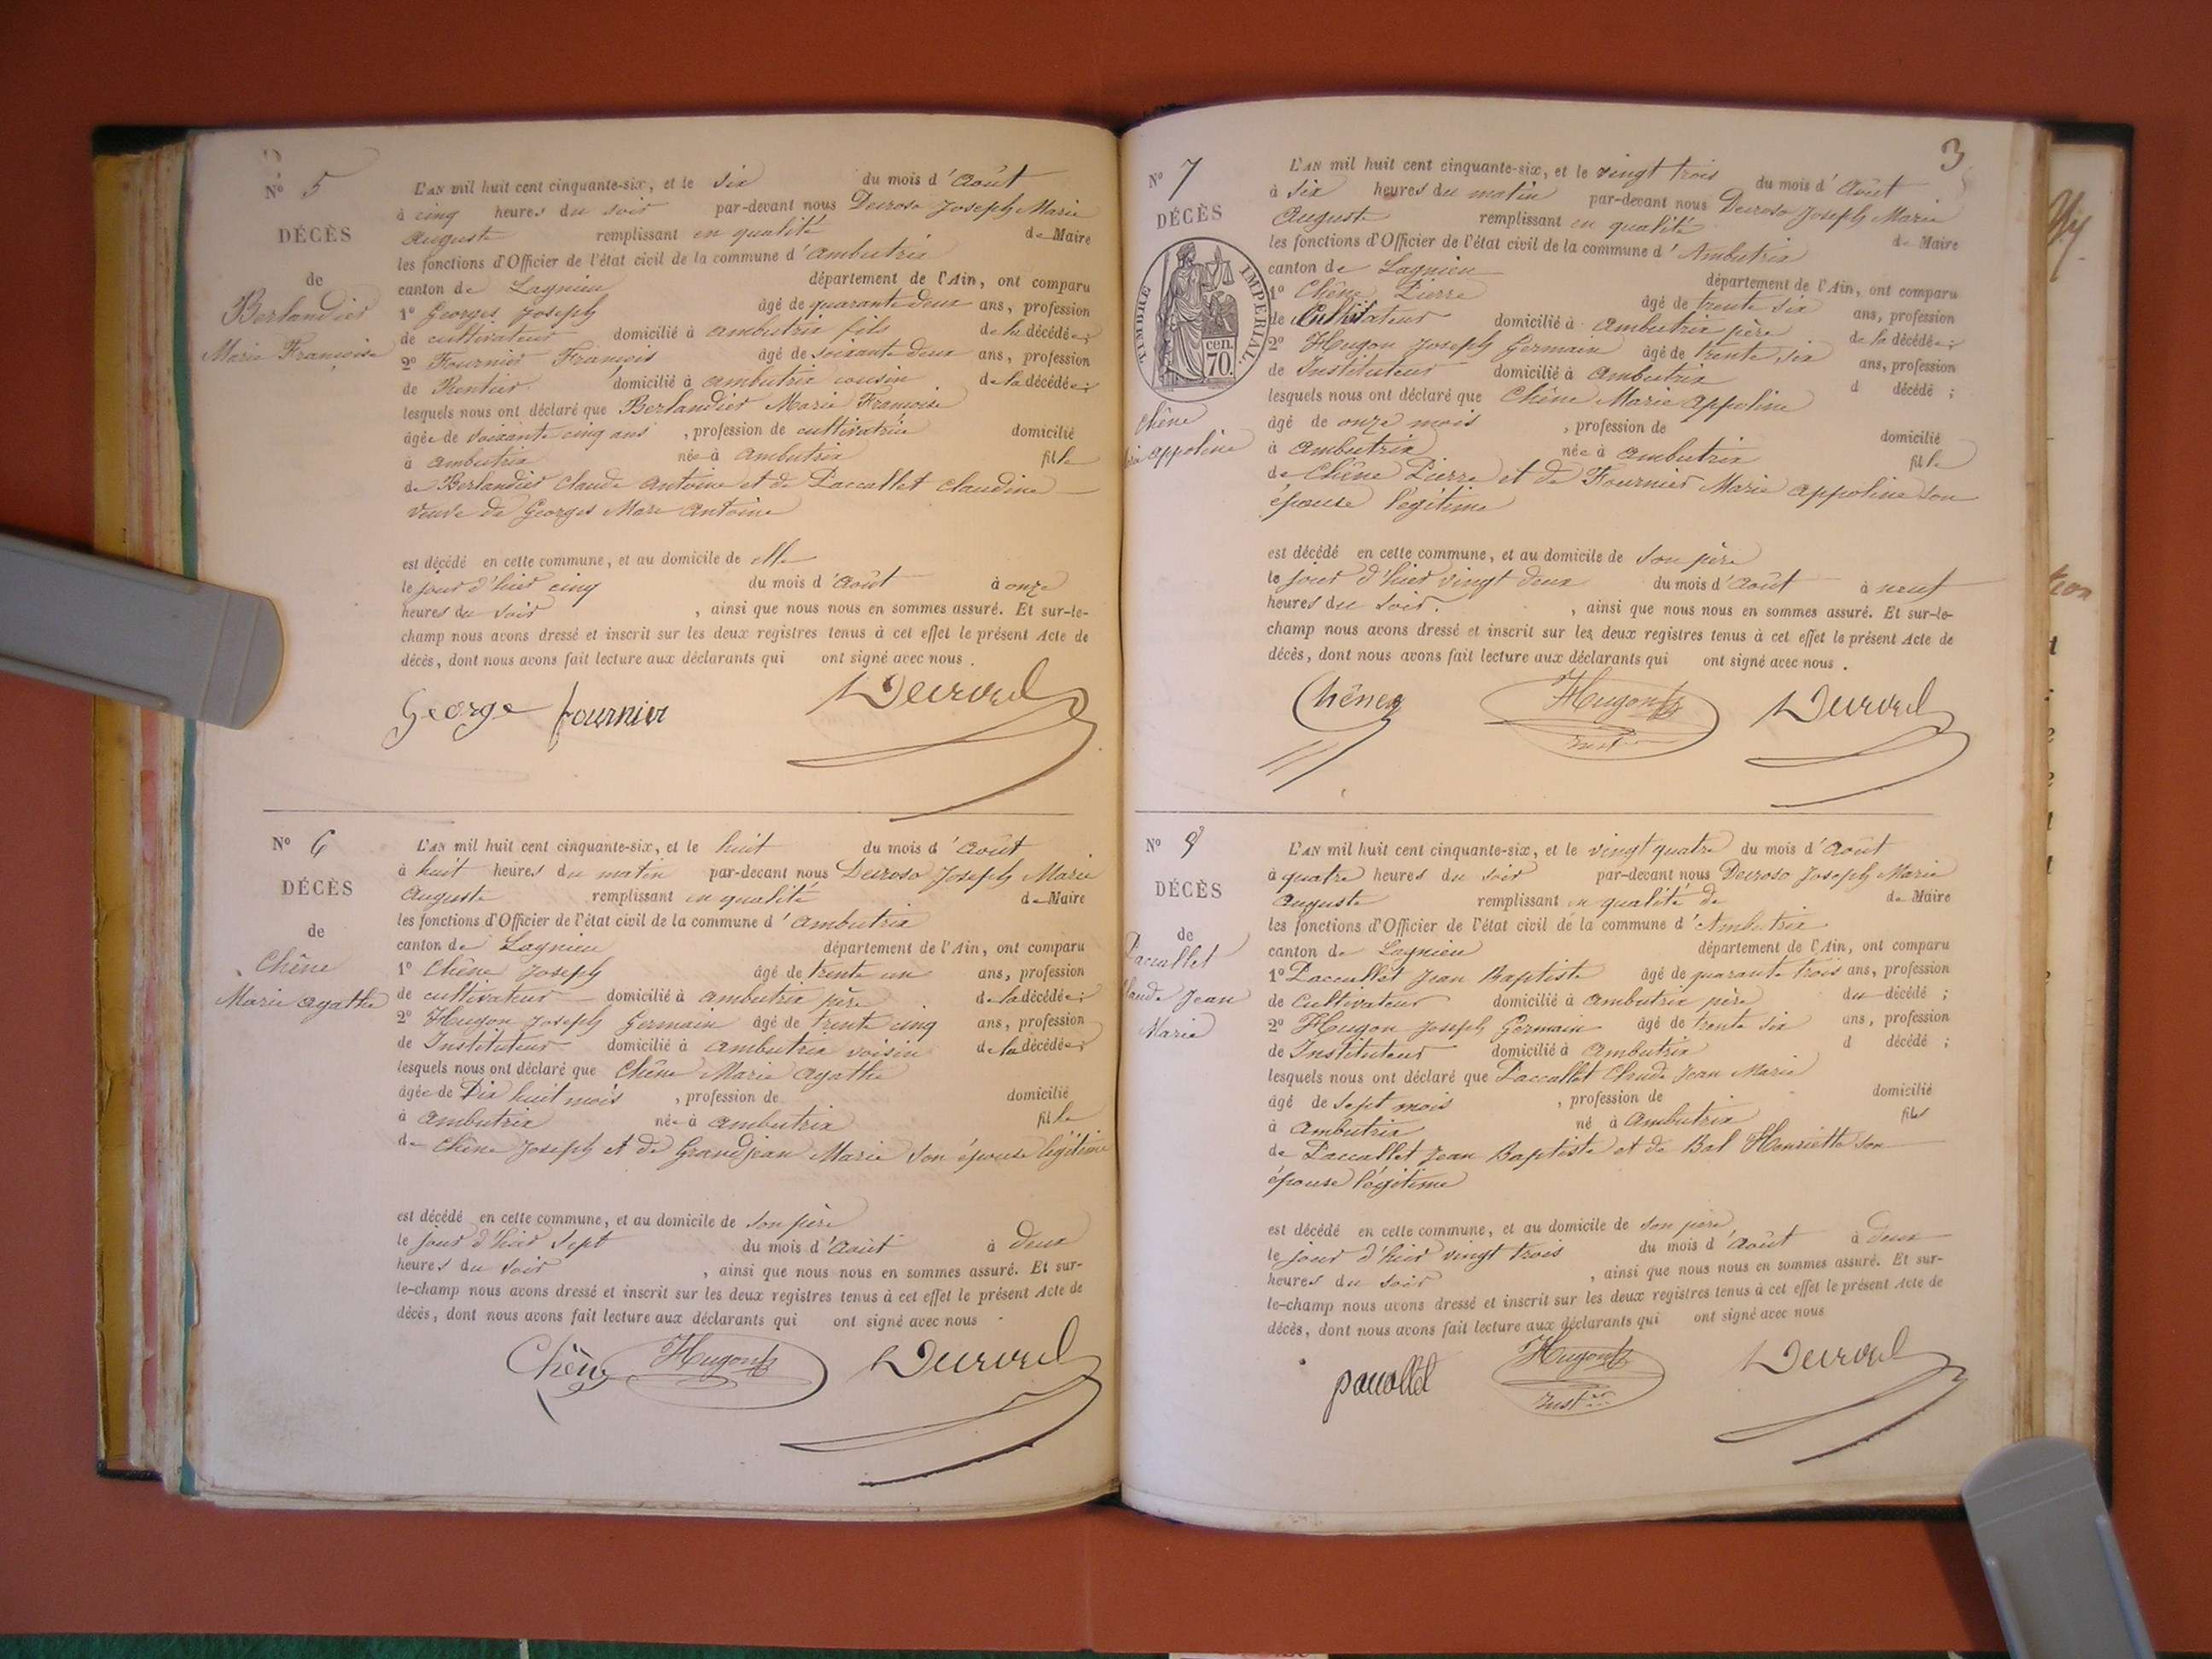 N° 5
DÉCÈS
de
Berlandier
Marie Françoise
L'AN mil huit cent cinquante-six, et le six du mois d'Août
à cinq heures du soir par-devant nous Decroso Joseph Marie
Auguste remplissant en qualité de Maire
les fonctions d'Officier de l'état civil de la commune d'Ambutrix
canton de Lagnieu département de l'Ain, ont comparu
1° Georges Joseph âgé de quarante deux ans, profession
de cultivateur domicilié à Ambutrix fils de la décédée;
2° Fournier François âgé de soixante deux ans, profession
de Rentier domicilié à Ambutrix cousin de la décédée;
lesquels nous ont déclaré que Berlandier Marie Françoise
âgée de soixante cinq ans, profession de cultivatrice domicilié
à Ambutrix née à Ambutrix fille
de Berlandier Claude Antoine et de Paccallet Claudine
veuve de Georges Marc Antoine
est décédé en cette commune, et au domicile de elle
le jour d'hier cinq du mois d'Août à onze
heures du soir, ainsi que nous nous en sommes assuré. Et sur-le-
champ nous avons dressé et inscrit sur les deux registres tenus à cet effet le présent Acte de
décès, dont nous avons fait lecture aux déclarants qui ont signé avec nous.
George fournier
N° 6
DÉCÈS
de
Chêne
Marie Agathe
L'AN mil huit cent cinquante-six, et le huit du mois d'Août
à huit heures du matin par-devant nous Decroso Joseph Marie
Auguste remplissant en qualité de Maire
les fonctions d'Officier de l'état civil de la commune d'Ambutrix
canton de Lagnieu département de l'Ain, ont comparu
1° Chêne Joseph âgé de trente un ans, profession
de cultivateur domicilié à Ambutrix père de la décédée;
2° Hugon Joseph Germain âgé de trente cinq ans, profession
de Instituteur domicilié à Ambutrix voisin de la décédée;
lesquels nous ont déclaré que Chêne Marie Agathe
âgée de Dix huit mois, profession de domicilié
à Ambutrix née à Ambutrix fille
de Chêne Joseph et de Grandjean Marie son épouse légitime
est décédé en cette commune, et au domicile de son père
le jour d'hier sept du mois d'Août à deux
heures du soir, ainsi que nous nous en sommes assuré. Et sur-
le-champ nous avons dressé et inscrit sur les deux registres tenus à cet effet le présent Acte de
décès, dont nous avons fait lecture aux déclarants qui ont signé avec nous
Chêne Hugon
3
N° 7
DÉCÈS
TIMBRE IMPERIAL.
cen.
70.
Chêne
Appoline
L'AN mil huit cent cinquante-six, et le vingt trois du mois d'Août
à six heures du matin par-devant nous Decroso Joseph Marie
Auguste remplissant en qualité de Maire
les fonctions d'Officier de l'état civil de la commune d'Ambutrix
canton de Lagnieu département de l'Ain, ont comparu
1° Chêne Pierre âgé de trente six ans, profession
de Cultivateur domicilié à Ambutrix père de la décédée;
2° Hugon Joseph Germain âgé de trente six ans, profession
de Instituteur domicilié à Ambutrix d décédé;
lesquels nous ont déclaré que Chêne Marie Appoline
âgé de onze mois, profession de domicilié
à Ambutrix née à Ambutrix fille
de Chêne Pierre et de Fournier Marie Appoline son
épouse légitime
est décédé en cette commune, et au domicile de son père
le jour d'hier vingt deux du mois d'Août à neuf
heures du soir., ainsi que nous nous en sommes assuré. Et sur-le-
champ nous avons dressé et inscrit sur les deux registres tenus à cet effet le présent Acte de
décès, dont nous avons fait lecture aux déclarants qui ont signé avec nous.
Chêne Hugon
N° 8
DÉCÈS
de
Paccallet
Claude Jean
Marie
L'AN mil huit cent cinquante-six, et le vingt quatre du mois d'Août
à quatre heures du soir par-devant nous Decroso Joseph Marie
Auguste remplissant en qualité de de Maire
les fonctions d'Officier de l'état civil de la commune d'Ambutrix
canton de Lagnieu département de l'Ain, ont comparu
1° Paccallet Jean Baptiste âgé de quarante trois ans, profession
de Cultivateur domicilié à Ambutrix père du décédé;
2° Hugon Joseph Germain âgé de trente six ans, profession
de Instituteur domicilié à Ambutrix d décédé;
lesquels nous ont déclaré que Paccallet Claude Jean Marie
âgé de sept mois, profession de domicilié
à Ambutrix né à Ambutrix fils
de Paccallet Jean Baptiste et de Bal Henriette son
épouse légitime
est décédé en cette commune, et au domicile de son père
le jour d'hier vingt trois du mois d'Août à deux
heures du soir, ainsi que nous nous en sommes assuré. Et sur-
le-champ nous avons dressé et inscrit sur les deux registres tenus à cet effet le présent Acte de
décès, dont nous avons fait lecture aux déclarants qui ont signé avec nous
paccallet Hugon